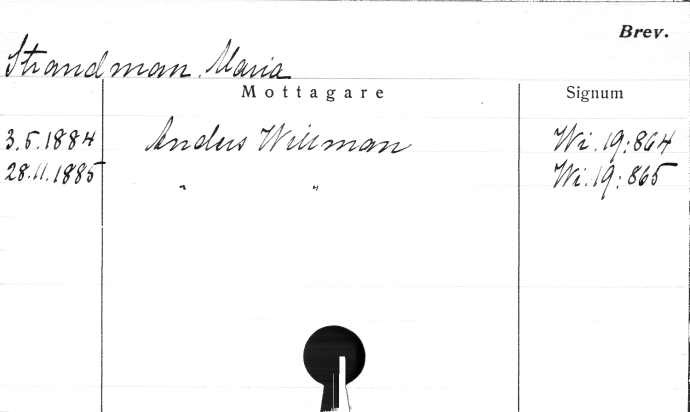 Brev.
Strandman, Maria
Mottagare Signum
3.5.1884 Anders Willman Wi. 19:864
28.11.1885 " " Wi. 19:865